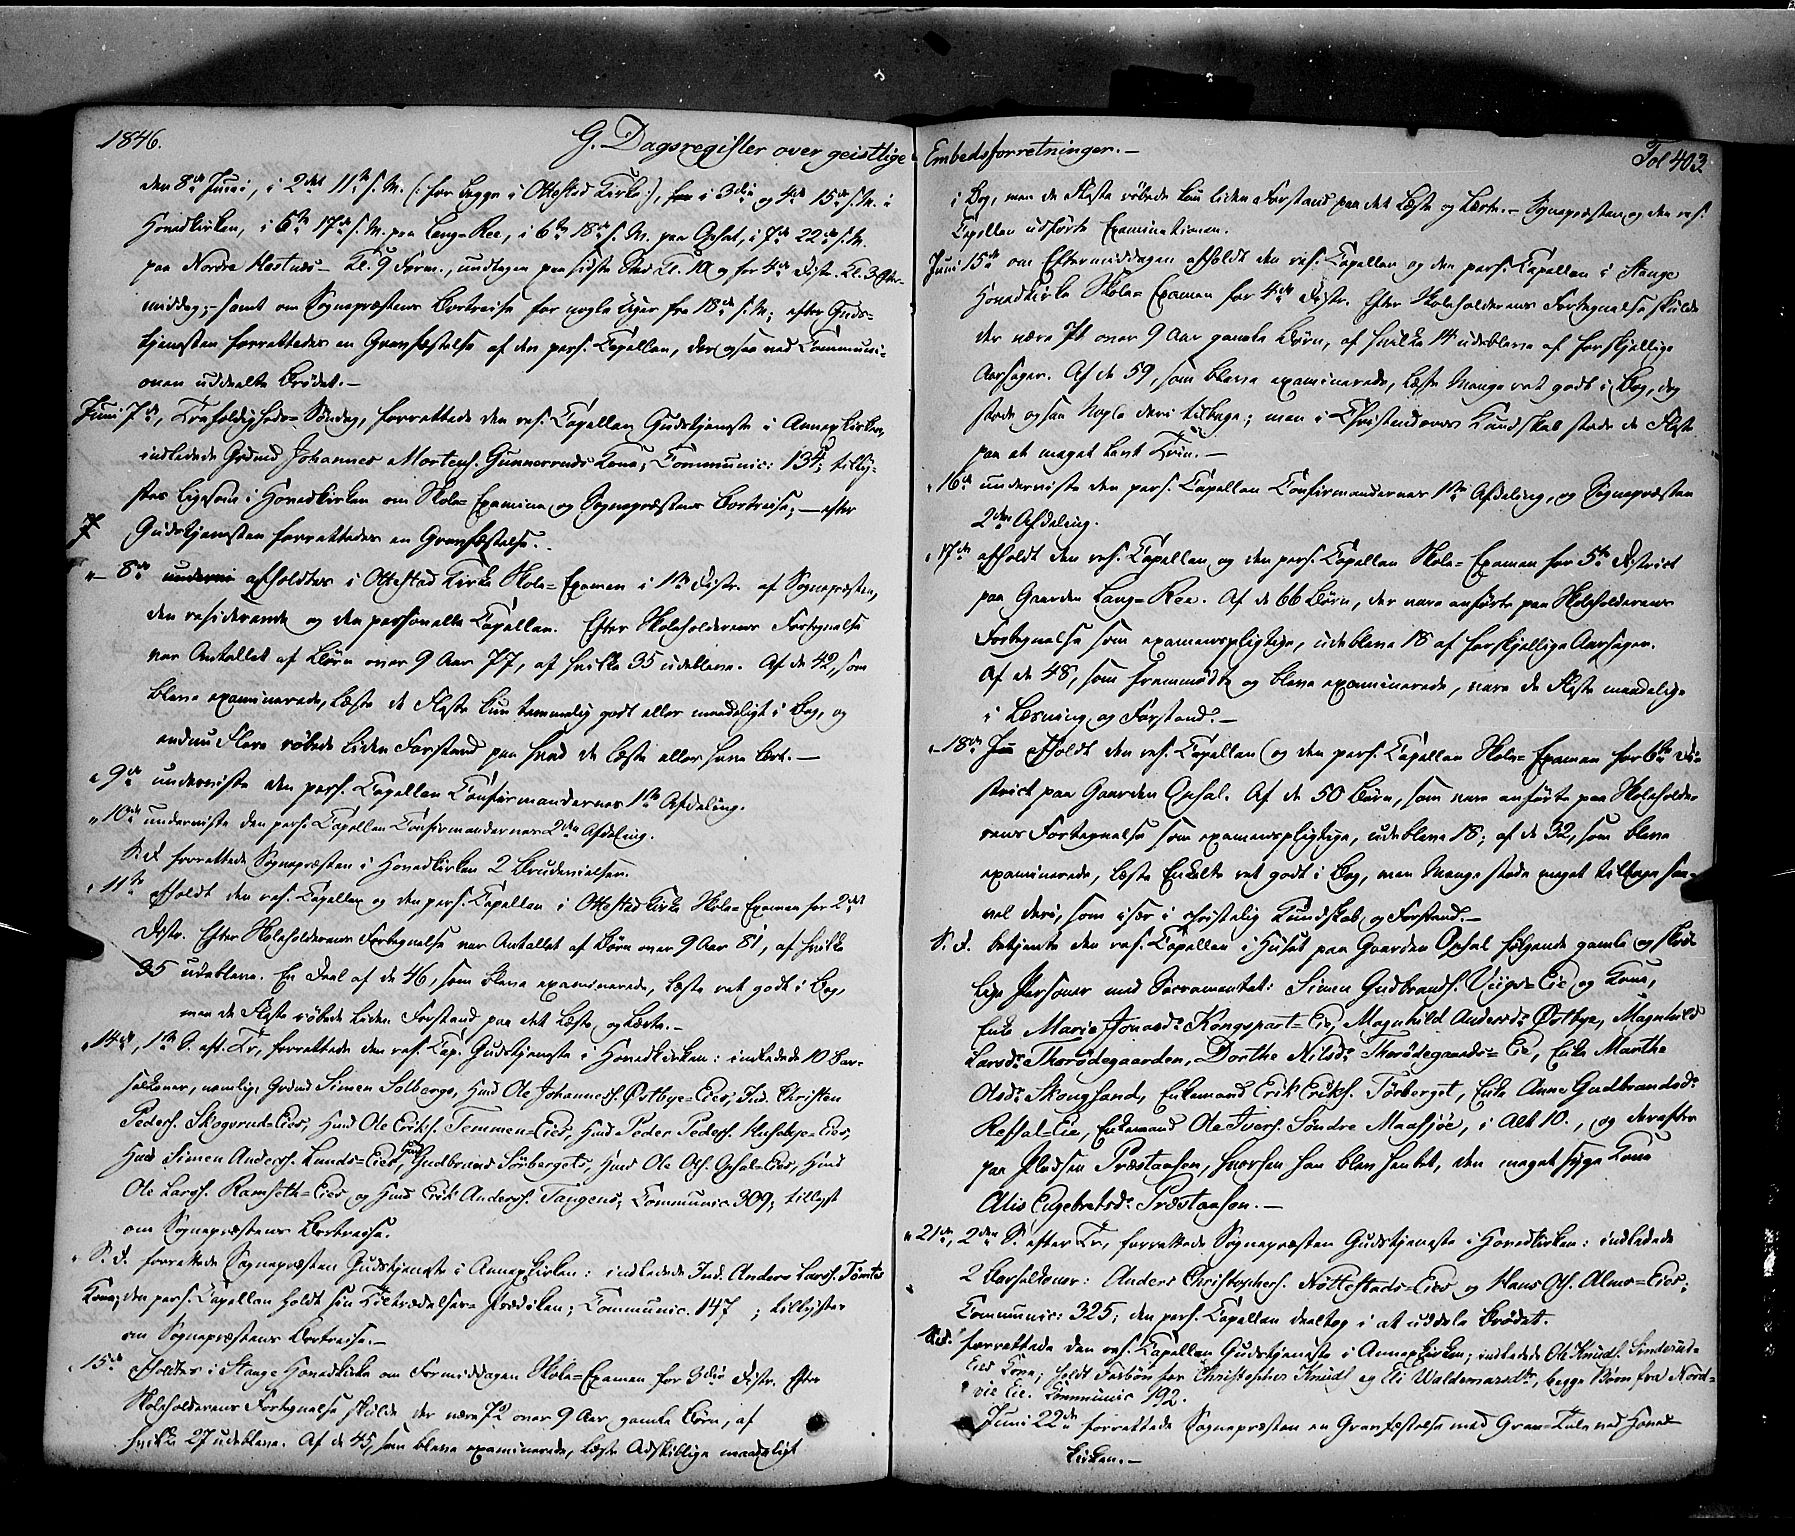 1846.
G. Dagsregister over geistlige
den 8de Juni, i 2det 11te s. M. (: for begge i Ottestad Kirke :), i 3die og 4de 15de s. M. i
Hovedkirken, i 5te 17de s. M. paa Lang-Ree, i 6te 18de s. M. paa Opsal, i 7de 22de s. M.
paa Nordre Kl. 9 Form., undtagen paa sidste Sted Kl. 10 og for 4de Distr. Kl. 3 Efter-
middag; - samt om Sognepræstens Bortreise for nogle Uger fra 18de s. M.; efter Guds-
tjenesten forrettedes en Gravfæstelse af den pers. Capellan, der ogsaa ved Communi-
onen uddeelte Brødet. -
Juni 7de, Trefoldigheds-Søndag, forrettede den res. Capellan Gudstjeneste i Annexkirken,
indledede Grdmd Johannes Mortens. Gunnerruds Kone; Communic: 134; tilly-
stes ligesom i Hovedkirken om Skole-Examina og Sognepræstens Bortreise; - efter
Gudstjenesten forrettedes en Gravfæstelse. -
" - 8de afholdtes i Ottestad Kirke Skole-Examen i 1ste Distr. af Sognepræsten,
den residerende og den personelle Capellan. Efter Skoleholderens Fortegnelse
var Antallet af Børn over 9 Aar 77, af hvilke 35 udebleve. Af de 42, som
bleve examinerede, læste de Fleste kun temmelig godt eller maadeligt i Bog, og
endnu Flere røbede liden Forstand paa hvad de læste eller have lært. -
" 9de underviste den pers. Capellan Confirmandernes 1ste Afdeling.
" 10de underviste den pers. Capellan Confirmandernes 2den Afdeling.
S. D. forrettede Sognepræsten i Hovedkirken 2 Brudevielser.
" 11te afholdt den res. Capellan og den pers. Capellan i Ottestad Kirke Skole-Examen for 2det
Distr. Efter Skoleholderens Fortegnelse var Antallet af Børn over 9 Aar 81, af hvilke
35 udebleve. En Deel af de 46, som bleve examinerede, læste ret godt i Bog,
men de Fleste røbede liden Forstand paa det Læste og Lærte. -
" 14de, 1ste S. eft. Tr., forrettede den res. Cap. Gudstjeneste i Hovedkirken: indledede 10 Bar-
selkoner, nemlig: Grdmd Simen Solbergs, Hmd Ole Johannes. Østbye-Eies, Ind. Christen
Peders. Skogsrud-Eies, Hmd Ole Eriks. Temmen-Eies, Hmd Peder Peders. Husebye-Eies,
Hmd Simen Anders. Lunds-Eies, Hmd Gudbrand Sørbergets, Hmd Ole Ols. Opsal-Eies, Hmd
Ole Lars. Ramseth-Eies og Hmd Erik Anders. Tangens; Communic. 309; tillyst
om Sognepræstens Bortreise.
" S. D. forrettede Sognepræsten Gudstjeneste i Annexkirken: indledede Ind. Anders Lars. Tomtes
Kone; den pers. Capellan holdt sin Tiltrædelses-Prædiken; Communic. 147; tillystes
om Sognepræstens Bortreise. -
" 15de afholdtes i Stange Hovedkirke om Formiddagen Skole-Examen for 3die Distr. Efter
Skoleholderens Fortegnelse skulde der være 72 over 9 Aar gamle Børn, af
hvilke 27 udebleve. Af de 45, som bleve examinerede, læste Adskillige maadeligt
Embedsforretninger. -
Fol 403
i Bog, men de Fleste røbede kun liden Forstand paa det Læste og Lærte. - Sognepræsten og den res.
Capellan udførte Examinationen.
Juni 15de om Eftermiddagen afholdt den res. Capellan og den pers. Capellan i Stange
Hovedkirke Skole-Examen for 4de Distr. Efter Skoleholderens Fortegnelse skulde
der være over 9 Aar gamle Børn, af hvilke 14 udebleve af forskjellige
Aarsager. Af de 59, som bleve examinerede, læste Mange ret godt i Bog, dog
stode ogsaa Nogle deri tilbage; men i Christendoms Kundskab stode de Fleste
paa et meget lavt Trin. -
" 16de underviste den pers. Capellan Confirmandernes 1ste Afdeling, og Sognepræsten
2den Afdeling.
" 17de afholdt den res. Capellan og den pers. Capellan Skole-Examen for 5te District
paa Gaarden Lang-Ree. Af de 66 Børn, der vare anførte paa Skoleholderens
Fortegnelse som examenspligtige, udebleve 18 af forskjellige Aarsager.
Af de 48, som fremmødte og bleve examinerede, vare de Fleste maadelige
i Læsning og Forstand. -
" 18de afholdt den res. Capellan og den pers. Capellan Skole-Examen for 6te Di-
strict paa Gaarden Opsal. Af de 50 Børn, som vare anførte paa Skoleholde-
rens Fortegnelse som examenspligtige, udebleve 18; af de 32, som bleve
examinerede, læste Enkelte ret godt i Bog, men Mange stode meget tilbage saa-
vel deri, som især i christelig Kundskab og Forstand. -
S. D. betjente den res. Capellan i Huset paa Gaarden Opsal følgende gamle og skrøbe-
lige Personer med Sacramentet: Simen Gudbrands. Viigs-Eie og Kone,
Enke Marie Jonasdr Kongspart-Eie, Magnhild Andersdr Østbye, Magnhild
Larsdr Thorødegaarden, Dorthe Nilsdr Thorødegaards-Eie, Enke Marthe
Olsdr Skougsand, Enkemand Erik Eriks. Tørberget, Enke Anne Gudbrandsdr
Refsal-Eie, Enkemand Ole Ivers. Søndre Maasjøe, i Alt 10., og derefter
paa Pladsen Præstaasen, hvorhen han blev hentet, den meget syge Kone
Alis Engebretsdr Præstaasen. -
" 21de, 2den S. efter Tr., forrettede Sognepræsten Gudstjeneste i Hovedkirken: indledede
2 Barselkoner: Anders Christophers. Nøttestads-Eies og Hans Ols. Alms-Eies;
Communic: 325; den pers. Capellan deeltog i at uddele Brødet.
S. D. forrettede den res. Capellan Gudstjeneste i Annexkirken; indledede Ole Knuds.
Eies Kone; holdt Forbøn for Christopher Knuds. og Eli Waldemarsdtr, begge Børn fra Nord-
vie Eie. Communic 192.
Juni 22de forrettede Sognepræsten en Gravfæstelse med Grav-Tale ved Hoved-
kirken. -